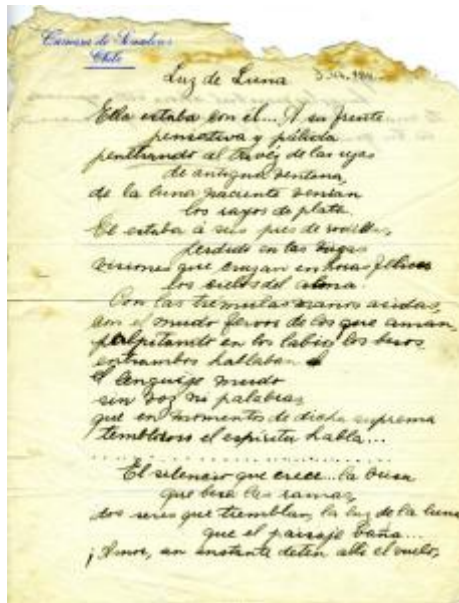 Camara de Senadores
Chile
Luz de Luna
Ella estaba con él... A su frente
pensativa y pálida
penetrando al travez de las rejas
de antigua ventana,
de la luna naciente venian
los rayos de plata.
El estaba á sus pies de rodillas,
perdido en las vagas
visiones que cruzan en horas felices
los cielos del alma.
Con las tremulas manos asidas,
con el mudo fervor de los que aman,
palpitando en los labios los besos,
entrambos hablaban
el lenguage mudo
sin voz ni palabras
que en momentos de dicha suprema
tembloroso el espiritu habla...
El silencio que crece... la brisa
que besa las ramas,
dos seres que tiemblan, la luz de la luna
que el paisaje baña...
¡Amor, un instante detén allí el vuelo,